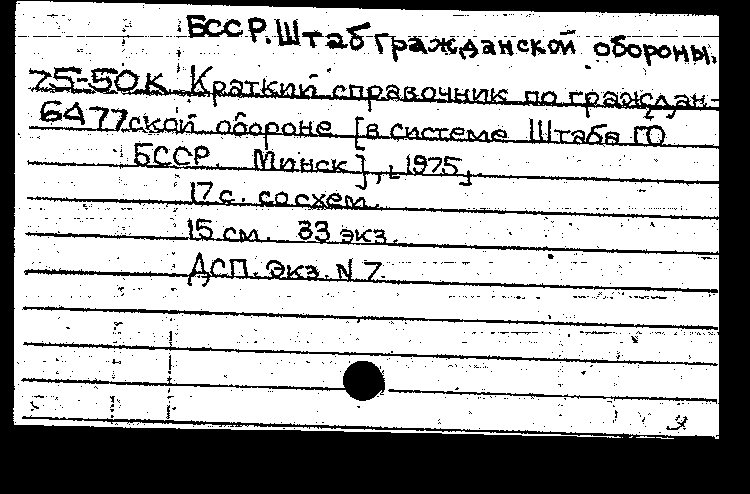 БССР. Штаб гражданской обороны.
75-50К Краткий справочник по граждан-
6477 ской обороне [в системе Штаба ГО
БССР. Минск], [1975].
17 с. со схем.
15 см. 33 экз.
ДСП. Экз. N 7.